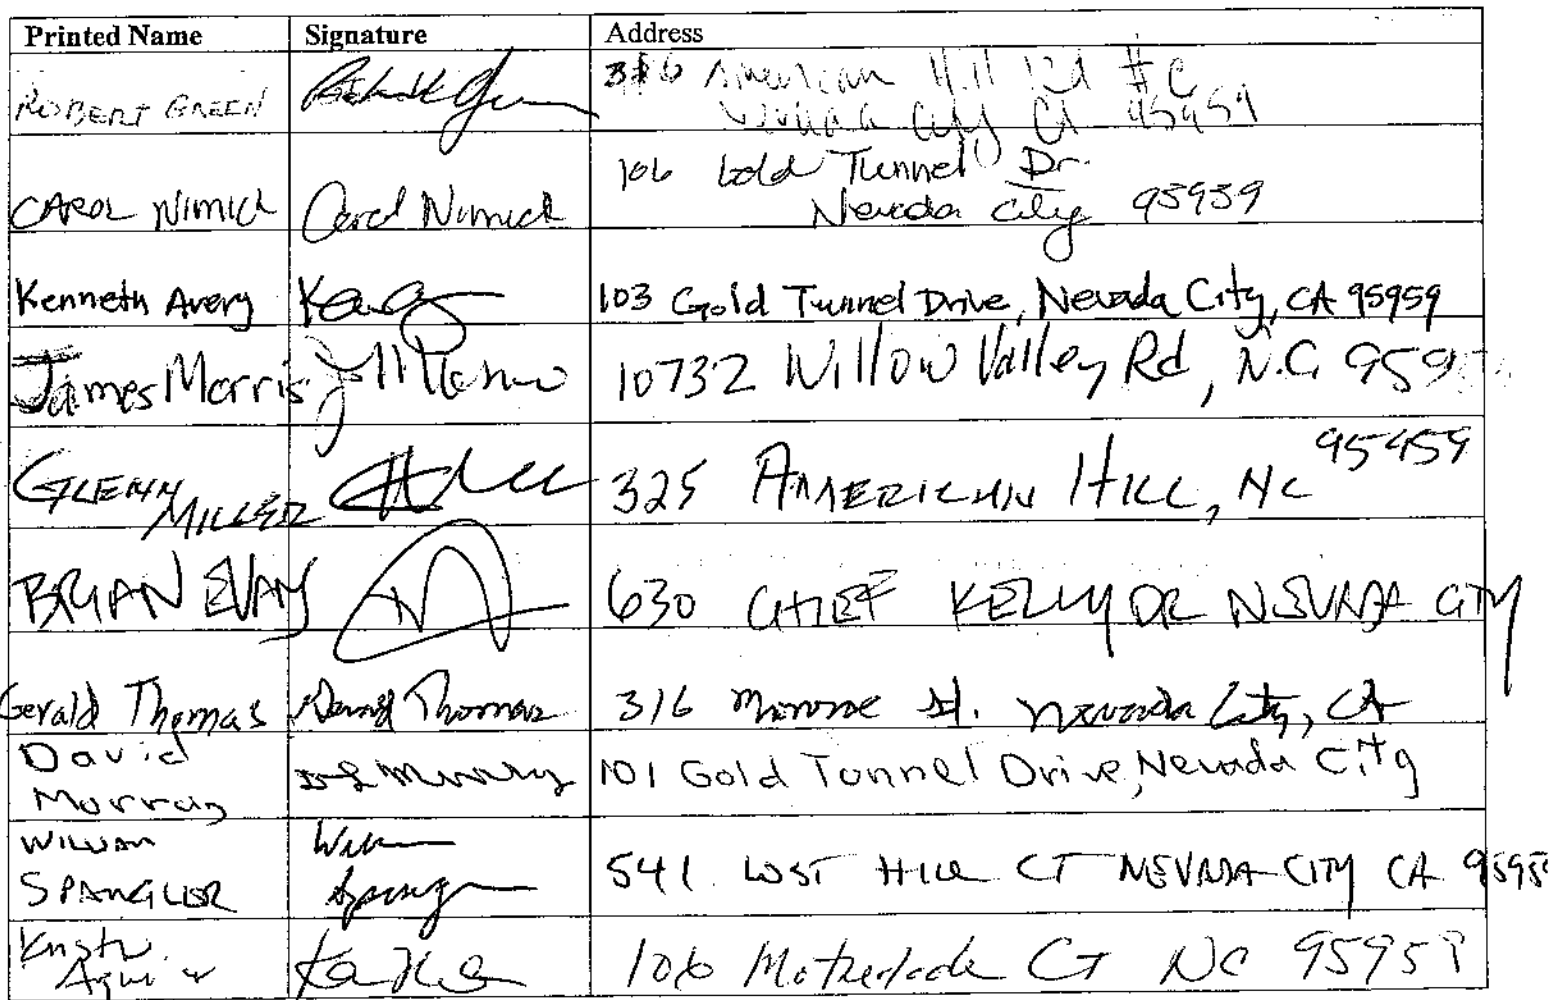 Printed Name Signature Address
ROBERT GREEN 316 American Hill Rd #C
Nevada City CA 95959
106 Gold Tunnel Dr.
CAROL NIMICK Carol Nimick Nevada City 95959
Kenneth Avery 103 Gold Tunnel Drive, Nevada City, CA 95959
James Morris 10732 Willow Valley Rd, N.C
GLENN 325 AMERICAN HILL, NC 95959
MILLER
BRIAN 630 CHIEF KELLY DR NEVADA CITY
Gerald Thomas Thomas 316 Monroe St. Nevada City, CA
David
Murray 101 Gold Tunnel Drive, Nevada City
WILLIAM
SPANGLER 541 LOST HILL CT NEVADA CITY CA 9595
106 Motherlode Ct NC 95959